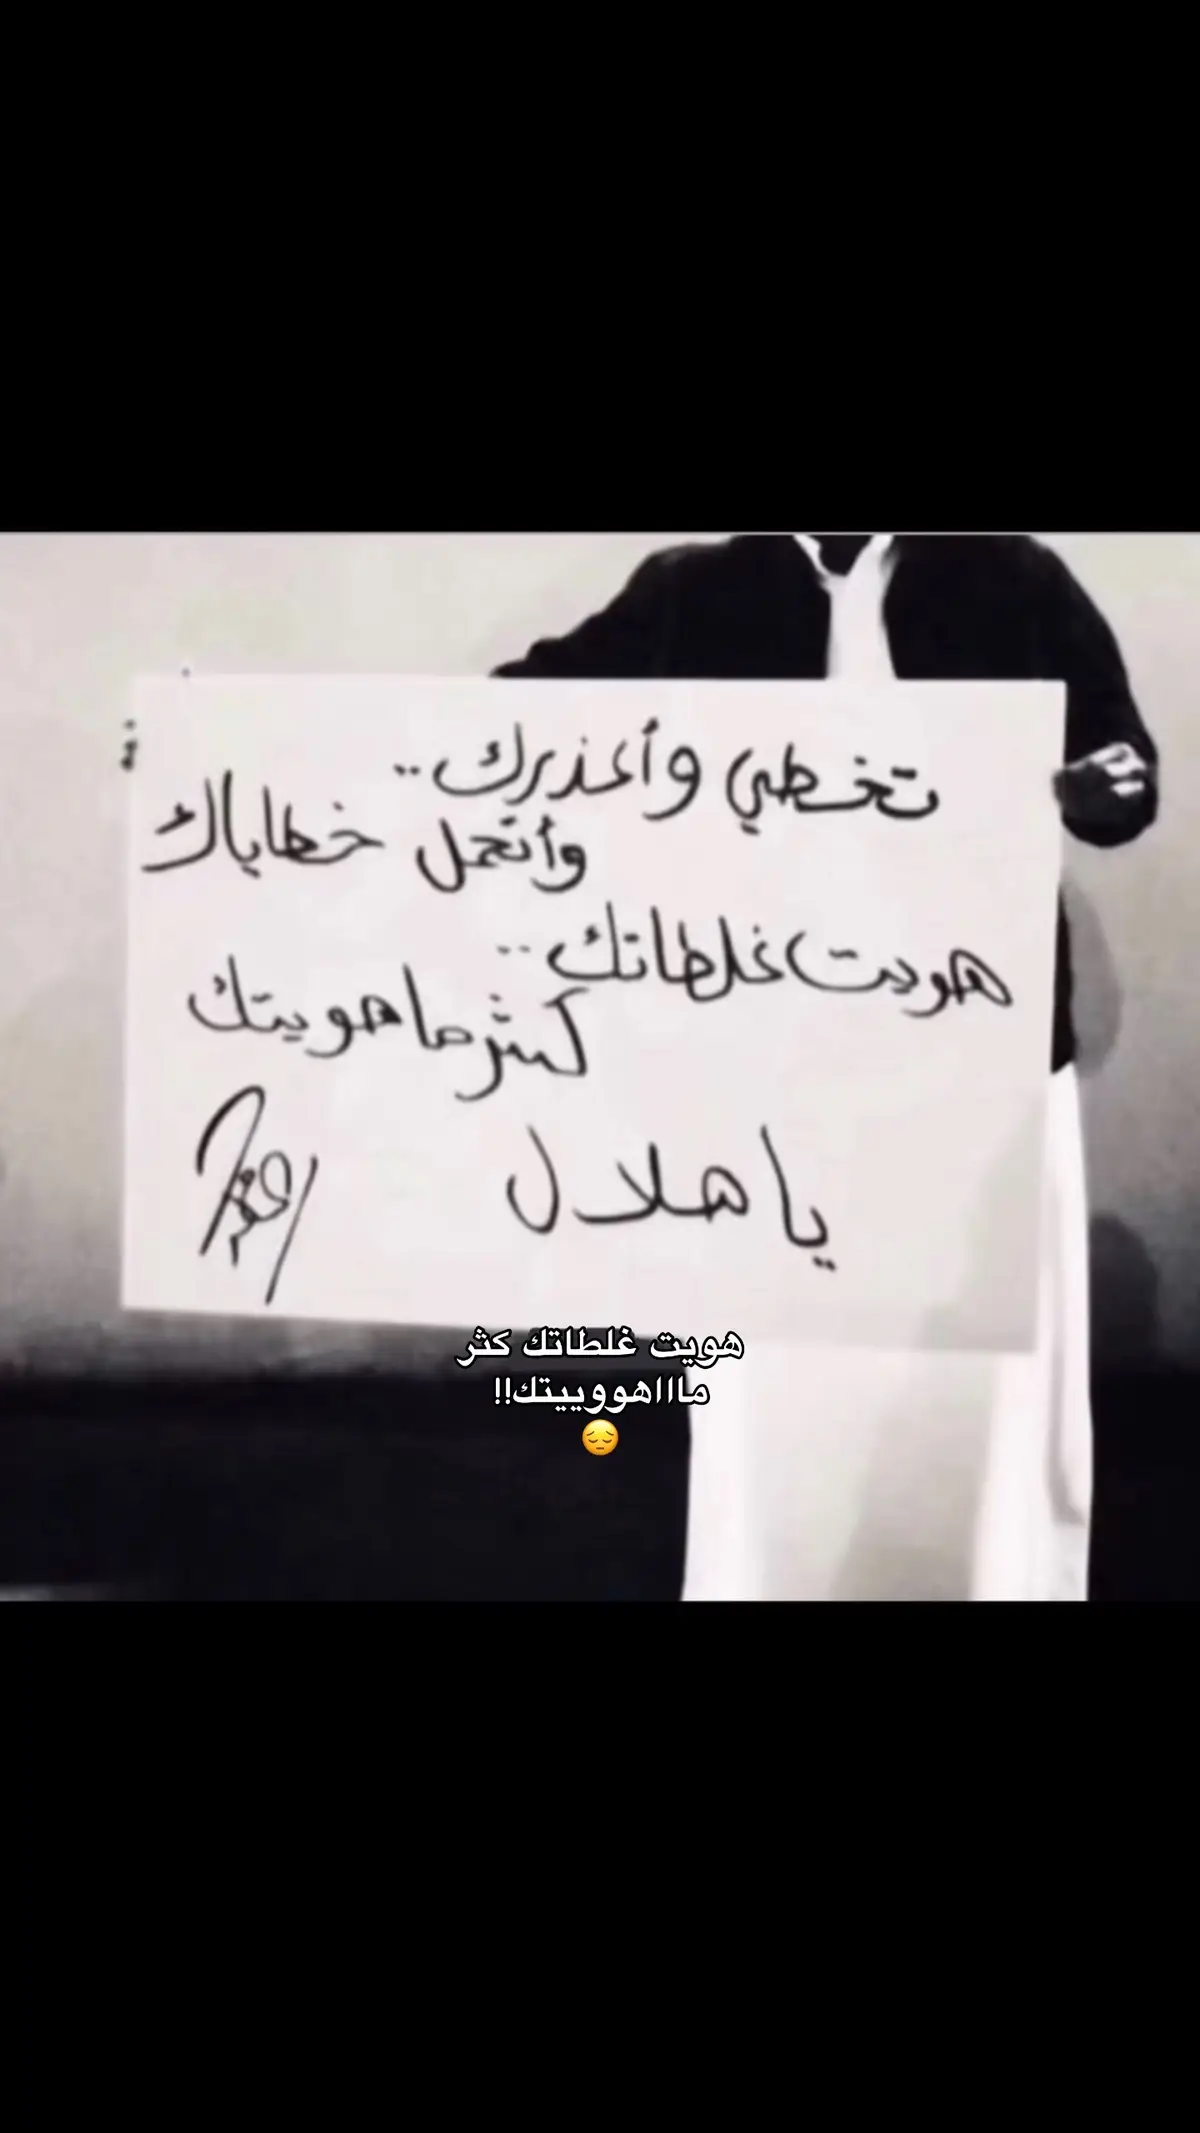 تخطي وأعذرك..
وأتحمل خطاياك
هويت غلطاتك..
كثر ما هويتك
يا هلال
هويت غلطاتك كثر
مااااهووييتك!!
😔